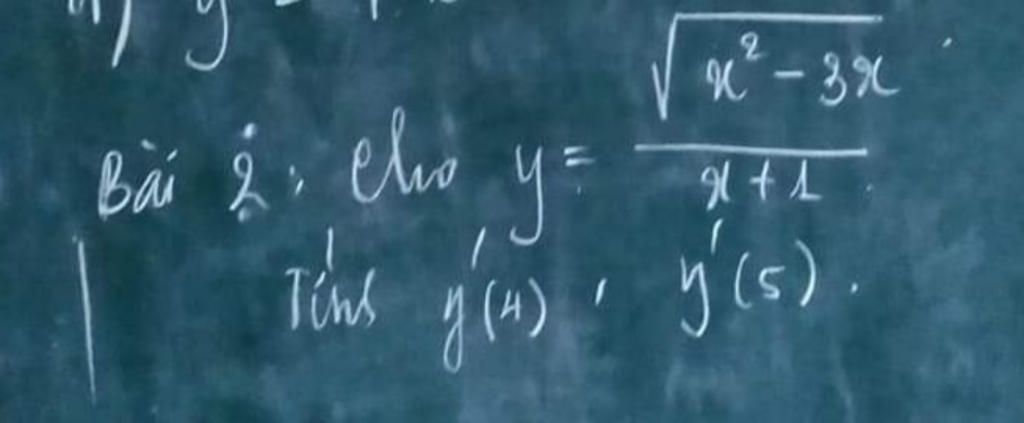 y =
Bài 2: Cho y = \frac{\sqrt{x^2 - 3x}}{x + 1}.
Tính y'(4), y'(5).